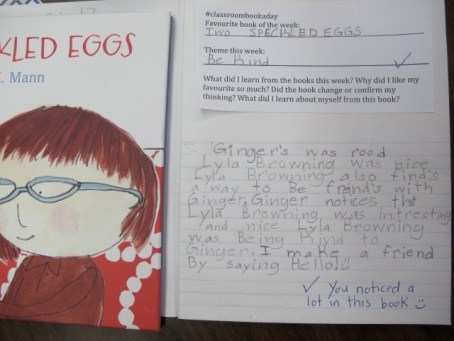 KLED EGGS
Mann
#classroombookaday
Favourite book of the week:
Two SPECKLED EGGS
Theme this week:
Be Kind
What did I learn from the books this week? Why did I like my
favourite so much? Did the book change or confirm my
thinking? What did I learn about myself from this book?
Ginger's was rood
Lyla Browning was nice
Lyla Browning also find's
a way to Be frend's with
Ginger. Ginger notices tht
Lyla Browning was Intresting
and nice Lyla Browning
was Being Kind to
Ginger. I make a friend
By saying Hello!
You noticed a
lot in this book